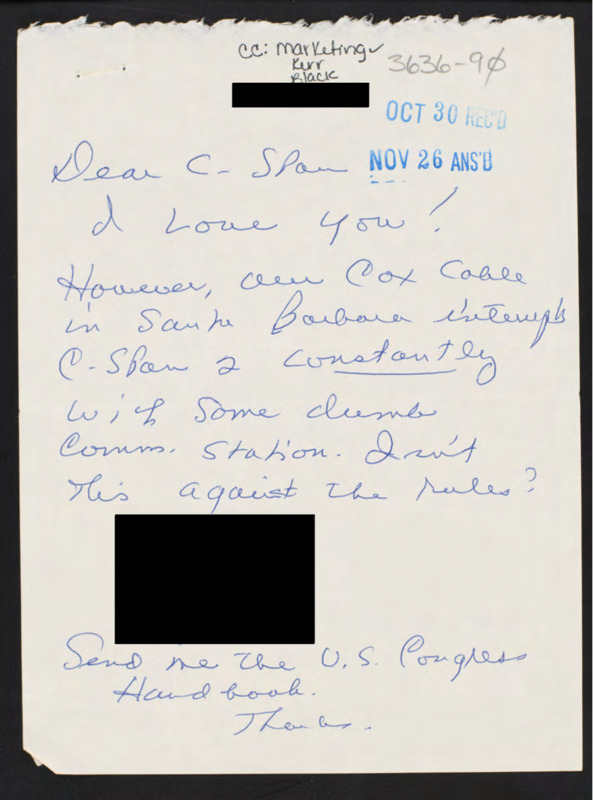 cc: marketing✓
Kerr
Black
3636-90
OCT 30 REC'D
NOV 26 ANS'D
Dear C-Span
I Love you!
However, our Cox Cable
in Santa Barbara interrupts
C-Span 2 constantly
with some dumb
Comm. Station. Isn't
this against the rules?
Send me the U.S. Congress
Handbook.
Thanks.